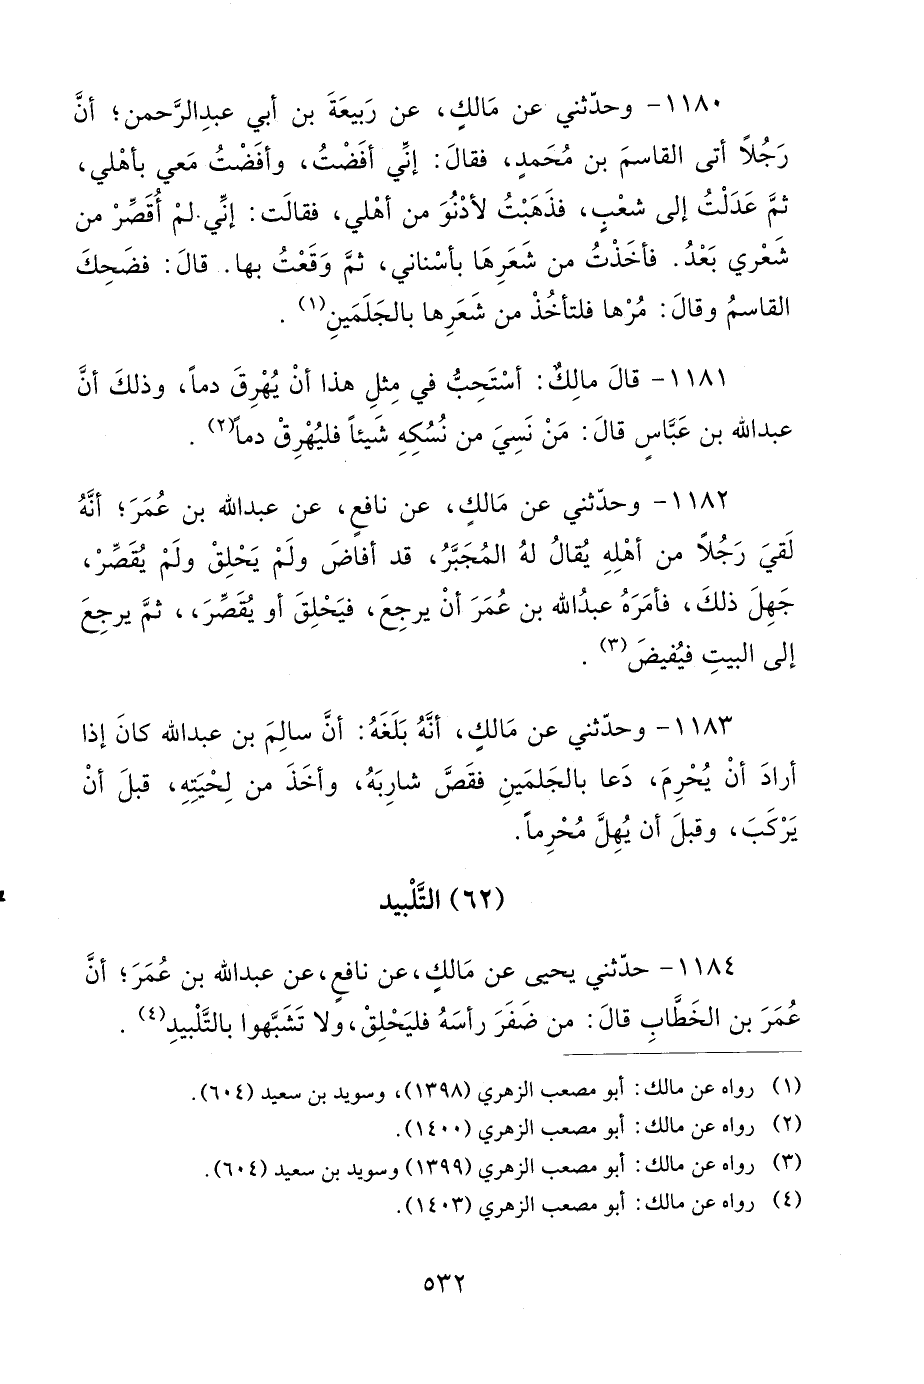 ١١٨٠- وحدّثني عن مَالكٍ، عن رَبيعَةَ بن أبي عبدِالرَّحمن؛ أنَّ
رَجُلاً أتى القاسمَ بن مُحَمدٍ، فقالَ: إنِّي أفَضْتُ، وأفَضْتُ مَعي بأهْلي،
ثمَّ عَدَلْتُ إلى شعْبٍ، فذَهَبْتُ لأدْنُوَ من أهْلي، فقالَت: إنِّي لمْ أُقَصِّرْ من
شَعْري بَعْدُ. فأخَذْتُ من شَعَرِهَا بأسْناني، ثمَّ وَقَعْتُ بها. قالَ: فضَحِكَ
القاسمُ وقالَ: مُرْها فلتأخُذْ من شَعَرِها بالجَلَمَينِ(١) .
١١٨١- قالَ مالِكٌ: أسْتَحِبُّ في مِثلِ هذا أنْ يُهْرِقَ دماً، وذلكَ أنَّ
عبدالله بن عَبَّاسٍ قالَ: مَنْ نَسِيَ من نُسُكِهِ شَيئاً فليُهْرِقْ دماً(٢) .
١١٨٢- وحدّثني عن مَالكٍ، عن نافعٍ، عن عبدالله بن عُمَرَ؛ أنَّهُ
لَقيَ رَجُلاً من أهْلِهِ يُقالُ لهُ المُجَبَّرُ، قد أفاضَ ولَمْ يَحْلِقْ ولَمْ يُقَصِّرْ،
جَهِلَ ذلكَ، فأمَرَهُ عبدُالله بن عُمَرَ أنْ يرجِعَ، فيَحْلِقَ أو يُقَصِّرَ،، ثمَّ يرجِعَ
إلى البيتِ فيُفيضَ(٣) .
١١٨٣- وحدّثني عن مَالكٍ، أنَّهُ بَلَغَهُ: أنَّ سالِمَ بن عبدالله كانَ إذا
أرادَ أنْ يُحْرِمَ، دَعا بالجَلمَينِ فقَصَّ شارِبَهُ، وأخَذَ من لِحْيَتِهِ، قبلَ أنْ
يَرْكَبَ، وقبلَ أن يُهِلَّ مُحْرِماً.
(٦٢) التَّلْبيد
١١٨٤- حدّثني يحيى عن مَالكٍ،عن نافعٍ،عن عبدالله بن عُمَرَ؛ أنَّ
عُمَرَ بن الخَطَّابِ قالَ: من ضَفَرَ رأسَهُ فليَحْلِقْ،ولا تَشَبَّهوا بالتَّلْبيدِ(٤) .
(١) رواه عن مالك: أبو مصعب الزهري (١٣٩٨)، وسويد بن سعيد (٦٠٤).
(٢) رواه عن مالك: أبو مصعب الزهري (١٤٠٠).
(٣) رواه عن مالك: أبو مصعب الزهري (١٣٩٩) وسويد بن سعيد (٦٠٤).
(٤) رواه عن مالك: أبو مصعب الزهري (١٤٠٣).
٥٣٢